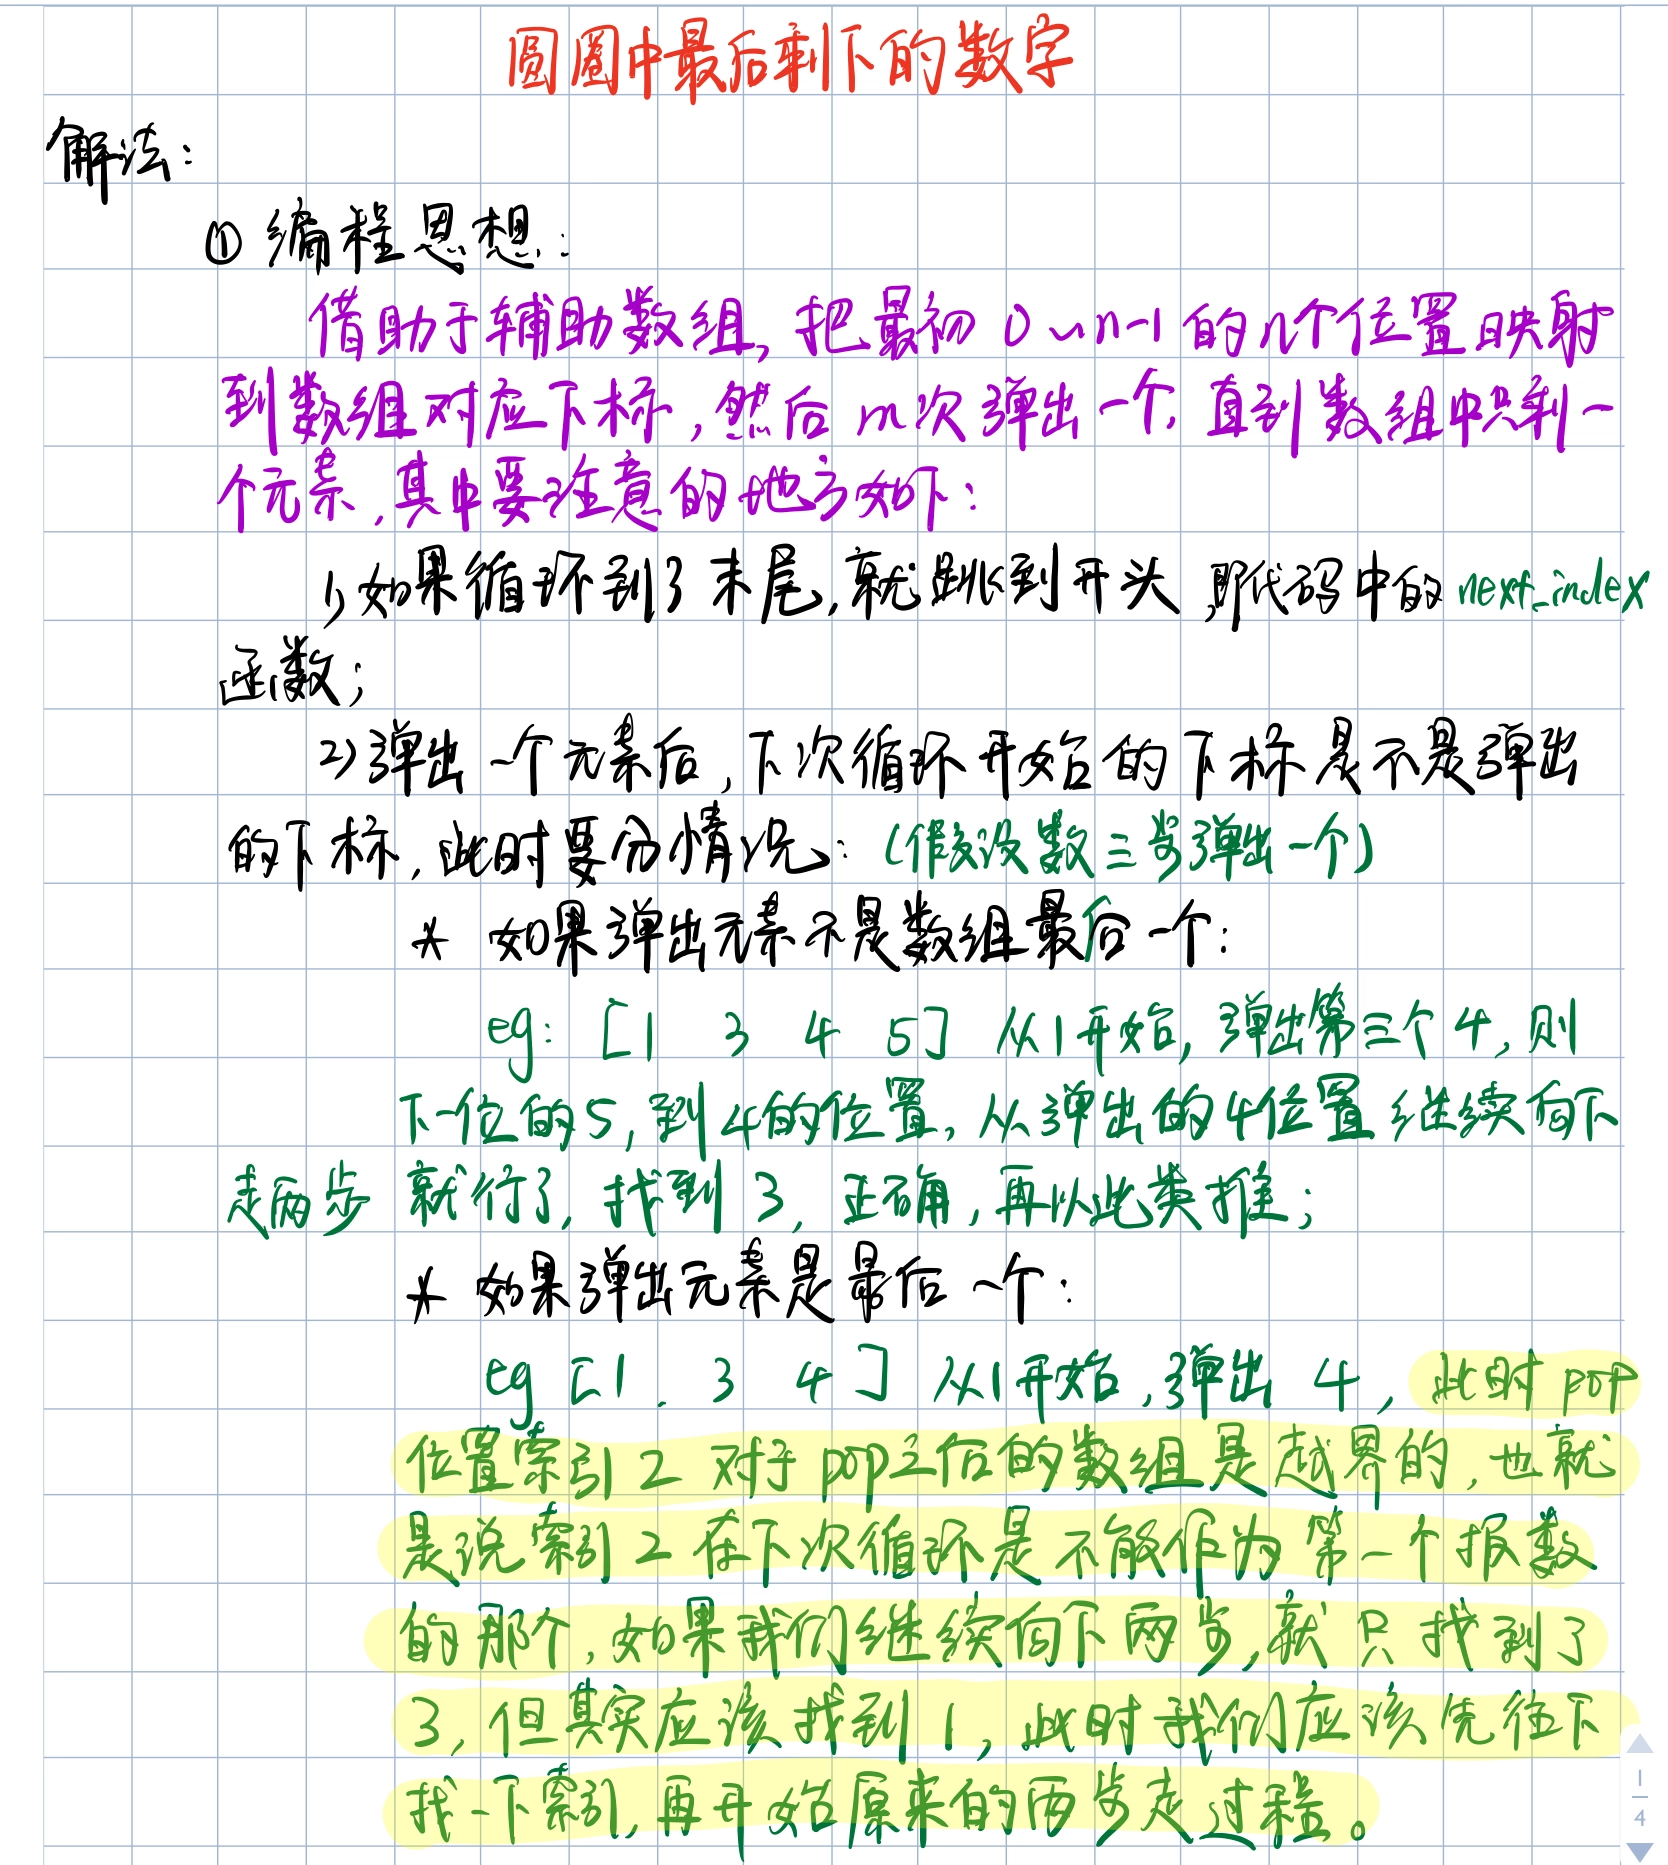 圆圈中最后剩下的数字
解法:
① 编程思想:
借助于辅助数组,把最初 0~n-1 的n个位置映射
到数组对应下标,然后 m次弹出一个,直到数组中只剩一
个元素,其中要注意的地方如下:
1)如果循环到了末尾,就跳到开头,即代码中的 next_index
函数;
2)弹出一个元素后,下次循环开始的下标是不是弹出
的下标,此时要分情况:(假设数三步弹出一个)
* 如果弹出元素不是数组最后一个:
eg: [1 3 4 5] 从1开始,弹出第三个4,则
下一位的5,到4的位置,从弹出的4位置继续向下
走两步 就行了,找到 3,正确,再以此类推;
* 如果弹出元素是最后一个:
eg [1. 3 4] 从1开始,弹出 4,此时pop
位置索引2 对于pop之后的数组是越界的,也就
是说索引2 在下次循环是不能作为第一个报数
的那个,如果我们继续向下两步,就只找到了
3,但其实应该找到1,此时我们应该先往下
找一下索引,再开始原来的两步走过程。
1
4